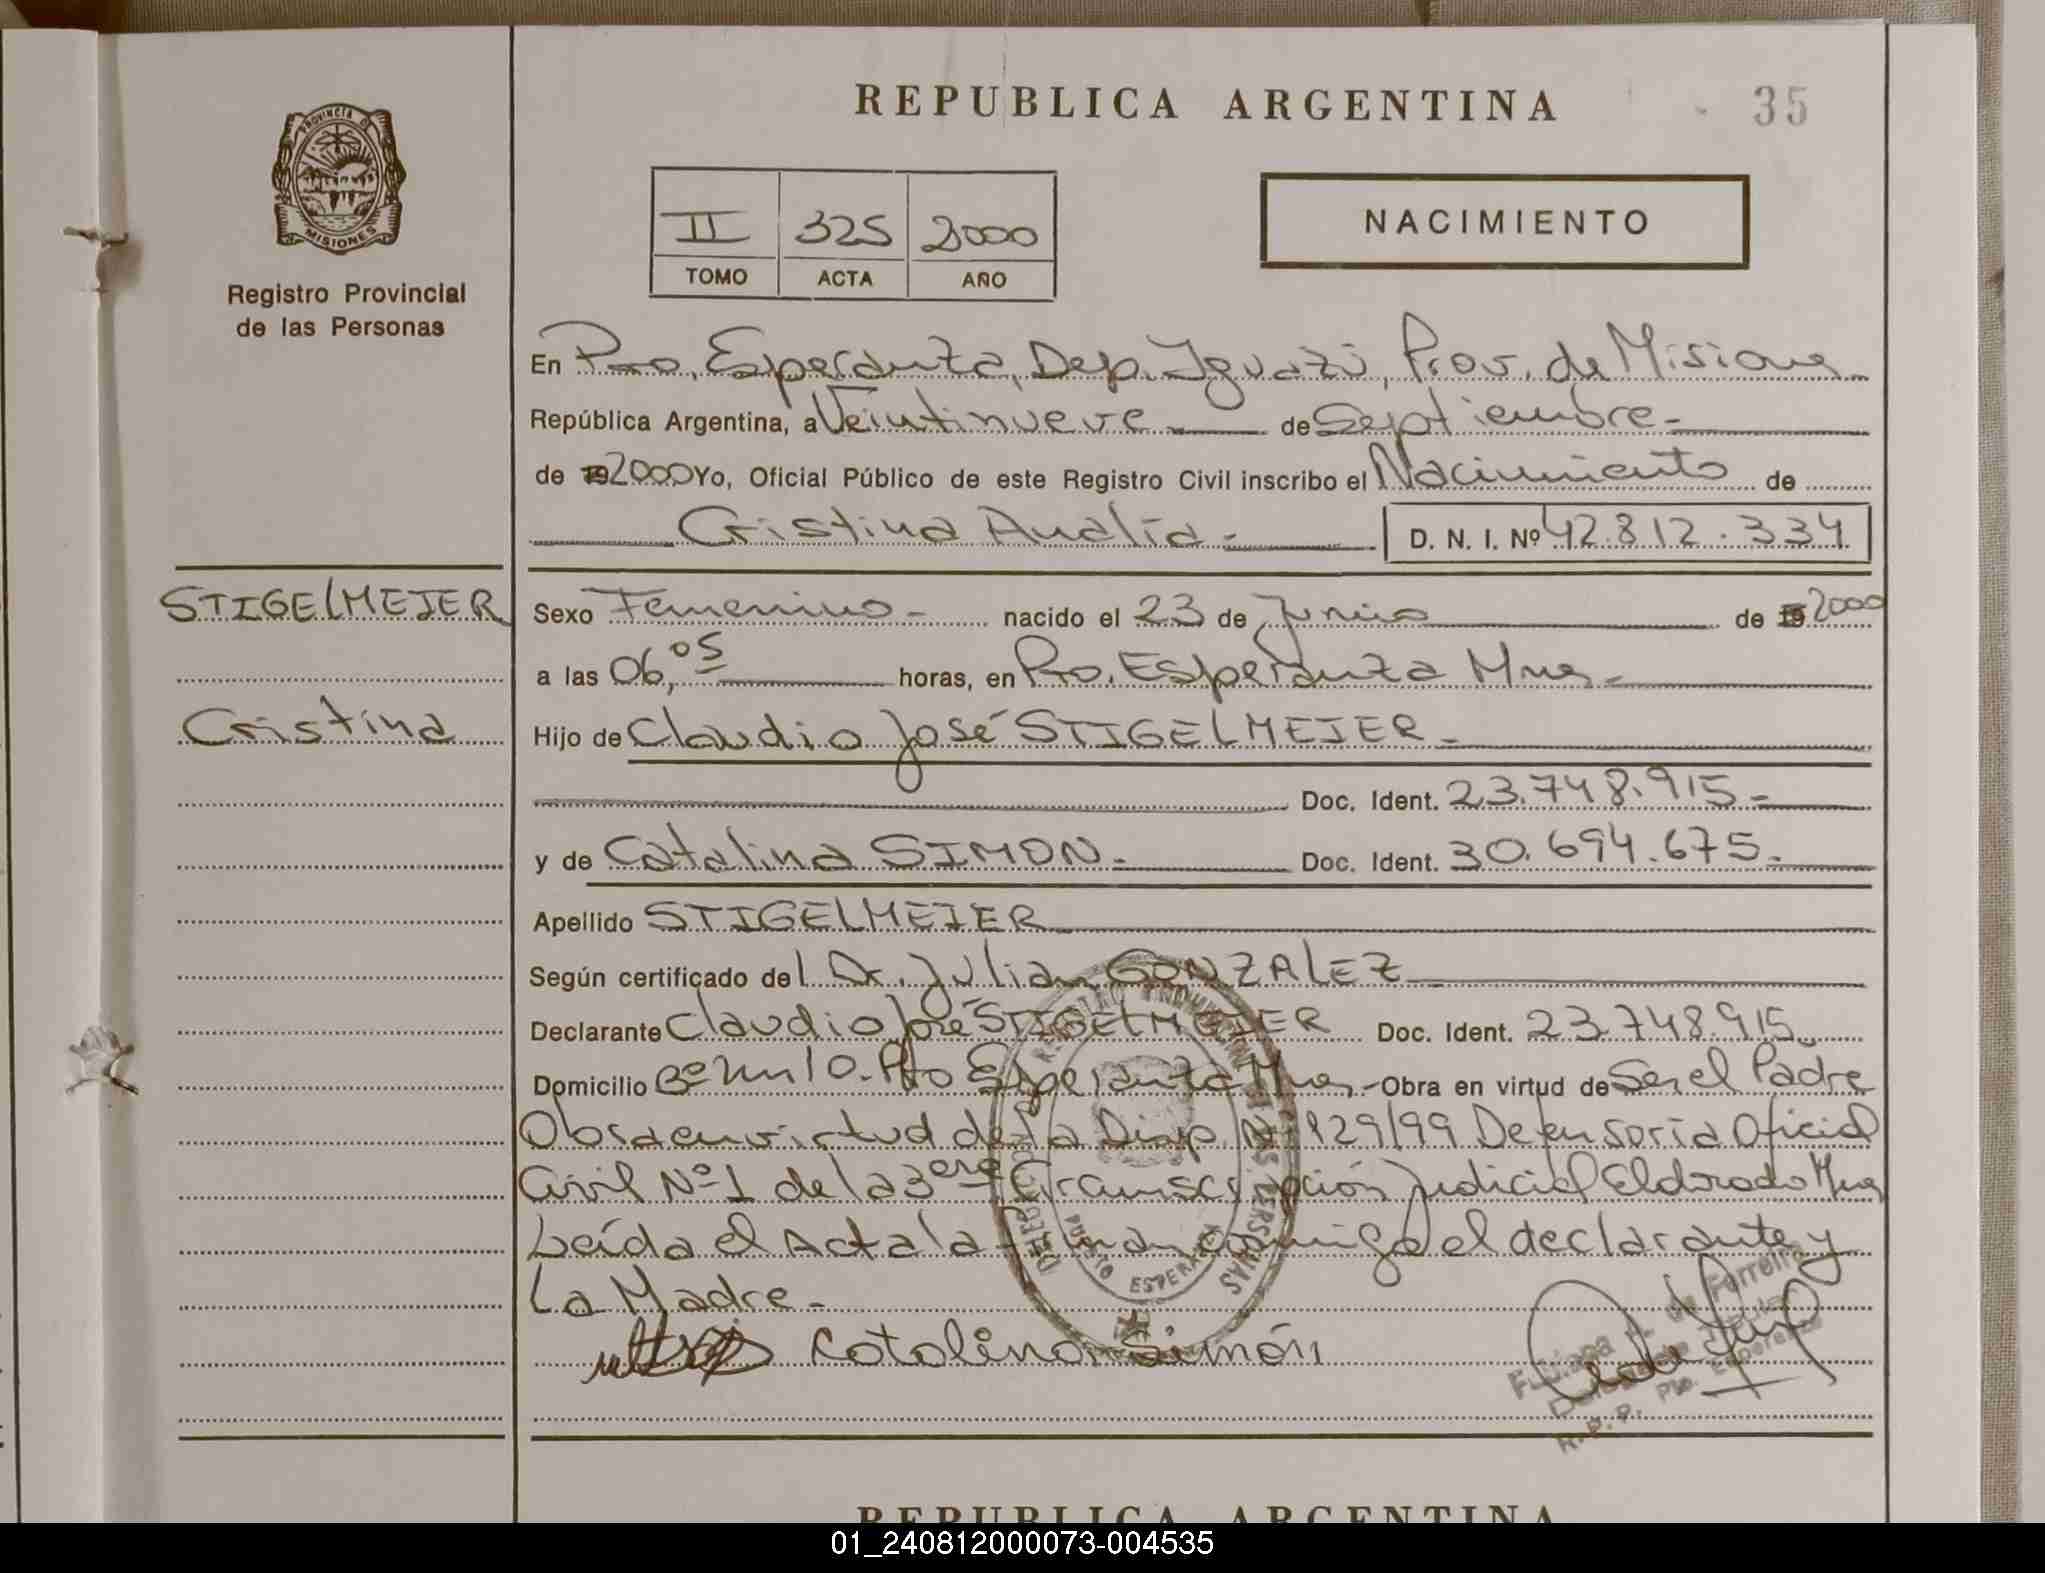 REPUBLICA ARGENTINA
35
PROVINCIA DE
MISIONES
Registro Provincial
de las Personas
II 325 2000
TOMO ACTA AÑO
NACIMIENTO
En Pto. Esperanza, Dep. Iguazú, Prov. de Misiones
República Argentina, a Veintinueve de Septiembre
de 19 2000 Yo, Oficial Público de este Registro Civil inscribo el Nacimiento de
Cristina Analía D. N. I. Nº 42.812.334
STIGELMEJER
Cristina
Sexo Femenino nacido el 23 de Junio de 19 2000
a las 06,05 horas, en Pto. Esperanza Mnes
Hijo de Claudio José STIGELMEJER
Doc. Ident. 23.748.915
y de Catalina SIMON Doc. Ident. 30.694.675
Apellido STIGELMEJER
Según certificado del Dr. Julian GONZALEZ
Declarante Claudio José STIGELMEJER Doc. Ident. 23.748.915
Domicilio Bº Pto Esperanza Mnes Obra en virtud de Ser el Padre
Obra en virtud de la Disp. Nº 129/99 Defensoría Oficial
Civil Nº 1 de la 3era Circunscripción Judicial Eldorado Mnes
Leída el Acta la firman conmigo el declarante y
La Madre
Catalina Simón
de Ferreira
R. P. P. Pto. Esperanza
PUERTO ESPERANZA
REPUBLICA ARGENTINA
01_240812000073-004535